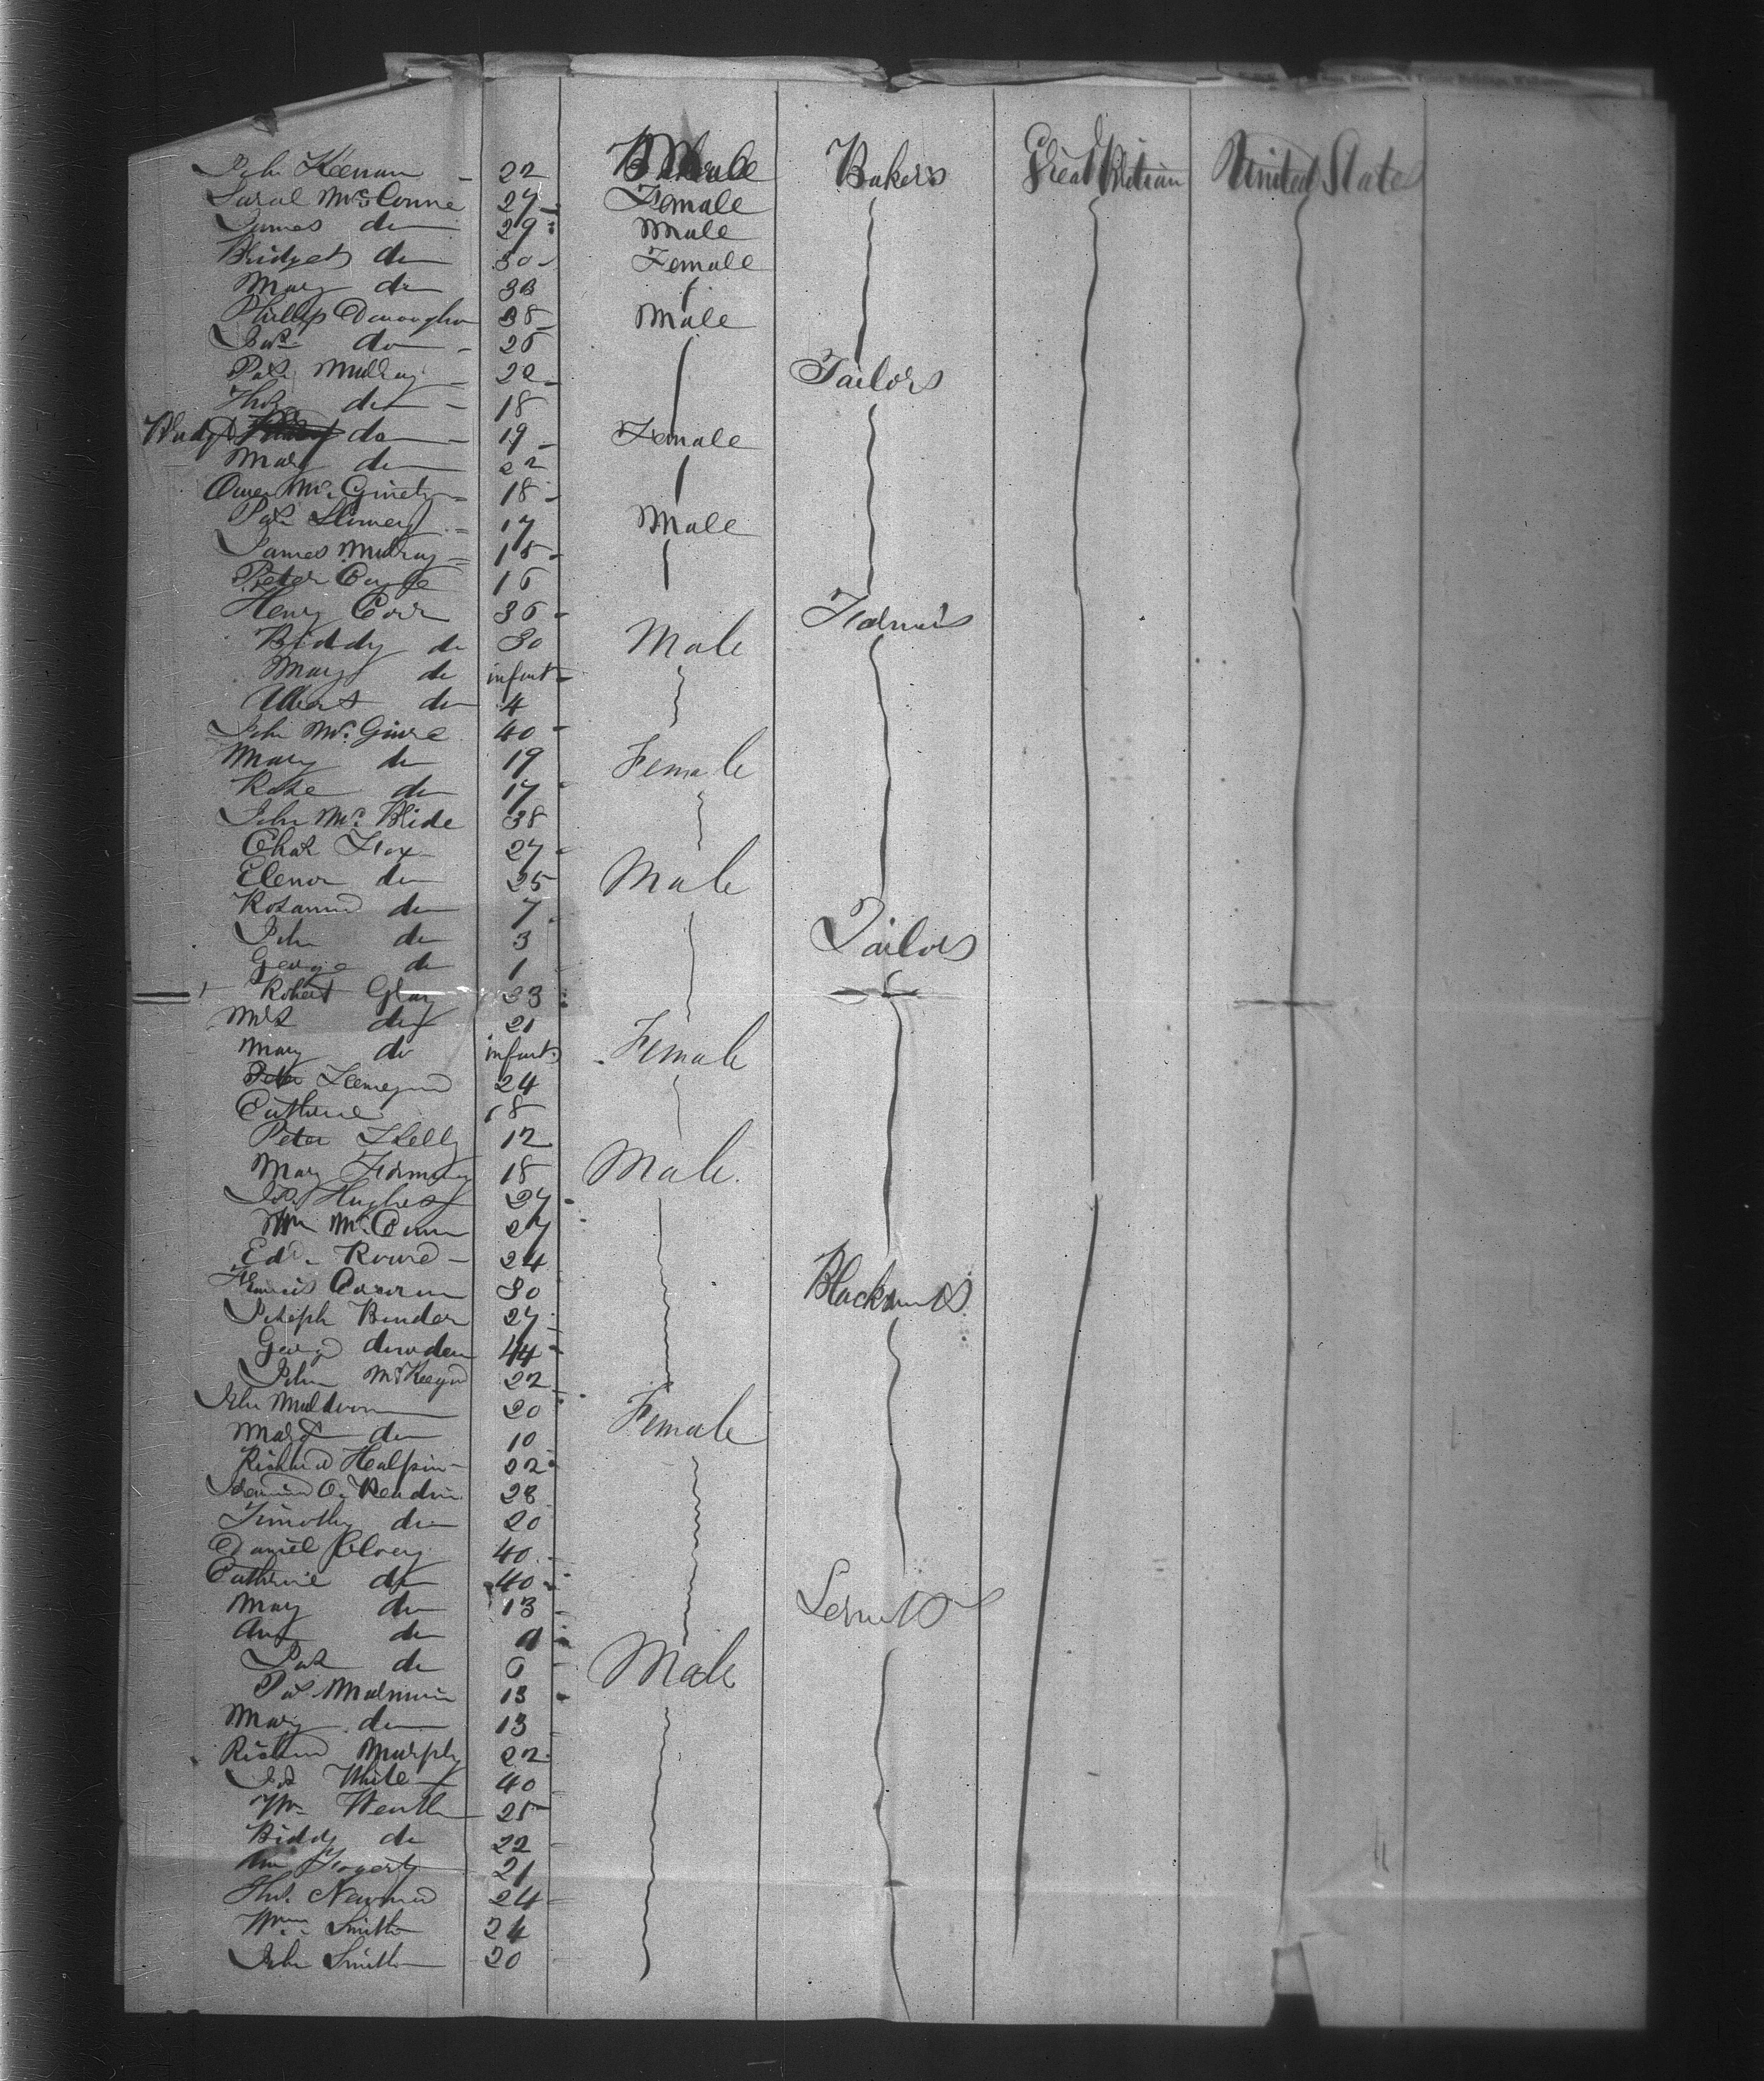 John Keenan - 22 Male Bakers Great Britian United States
Saral McConne 27 - Female
James do 29 Male
Bridget do 30 - Female
Mary do 33
Phillip Donooghu 38 - Male
Jas do - 26
Pat Mulley - 22 - Tailors
Thos do - 18
Bridgt do - 19 - Female
Mary do 22
Owen McGinety - 18 -
Pat 17 Male
James Murray - 18 -
Peter 16
Henry Corr 36 - Farmers
Biddy do 30 Male
Mary do infant -
Albert do 4
John McGuire 40 -
Mary do 19 Female
Rose do 17
John McBride 38
Chas Fox 27 -
Elenor do 25 Male
Rosannd do 7
John do 3 Tailors
George do 1
Robert Glay 23
Mrs do 21
Mary do infant Female
Peter 24
Catherine 18
Peter Kelly 12
Mary 18 Male
Jas Hughes 27 -
Wm McCann 27
Edd. Round - 24
Francis 30 Blacksmits
Joseph Binder 27
George dowden 44 -
John McKeegnd 22
John Muldoon 20 Female
Margt do 10
Richard Healpin 22
O. Reardin 28
Timothy do 20
Daniel 40 -
Catherine do 40 -
Mary do 13 -
Ann do
Pat do 6 - Male
Pat 13 -
Mary do 13
Richard Murphy 22
Jas White 40
Wm 25
Biddy do 22
Ann Fogerty 21
Thos. Newmed 24
Wm Smith 24
John Smith 20